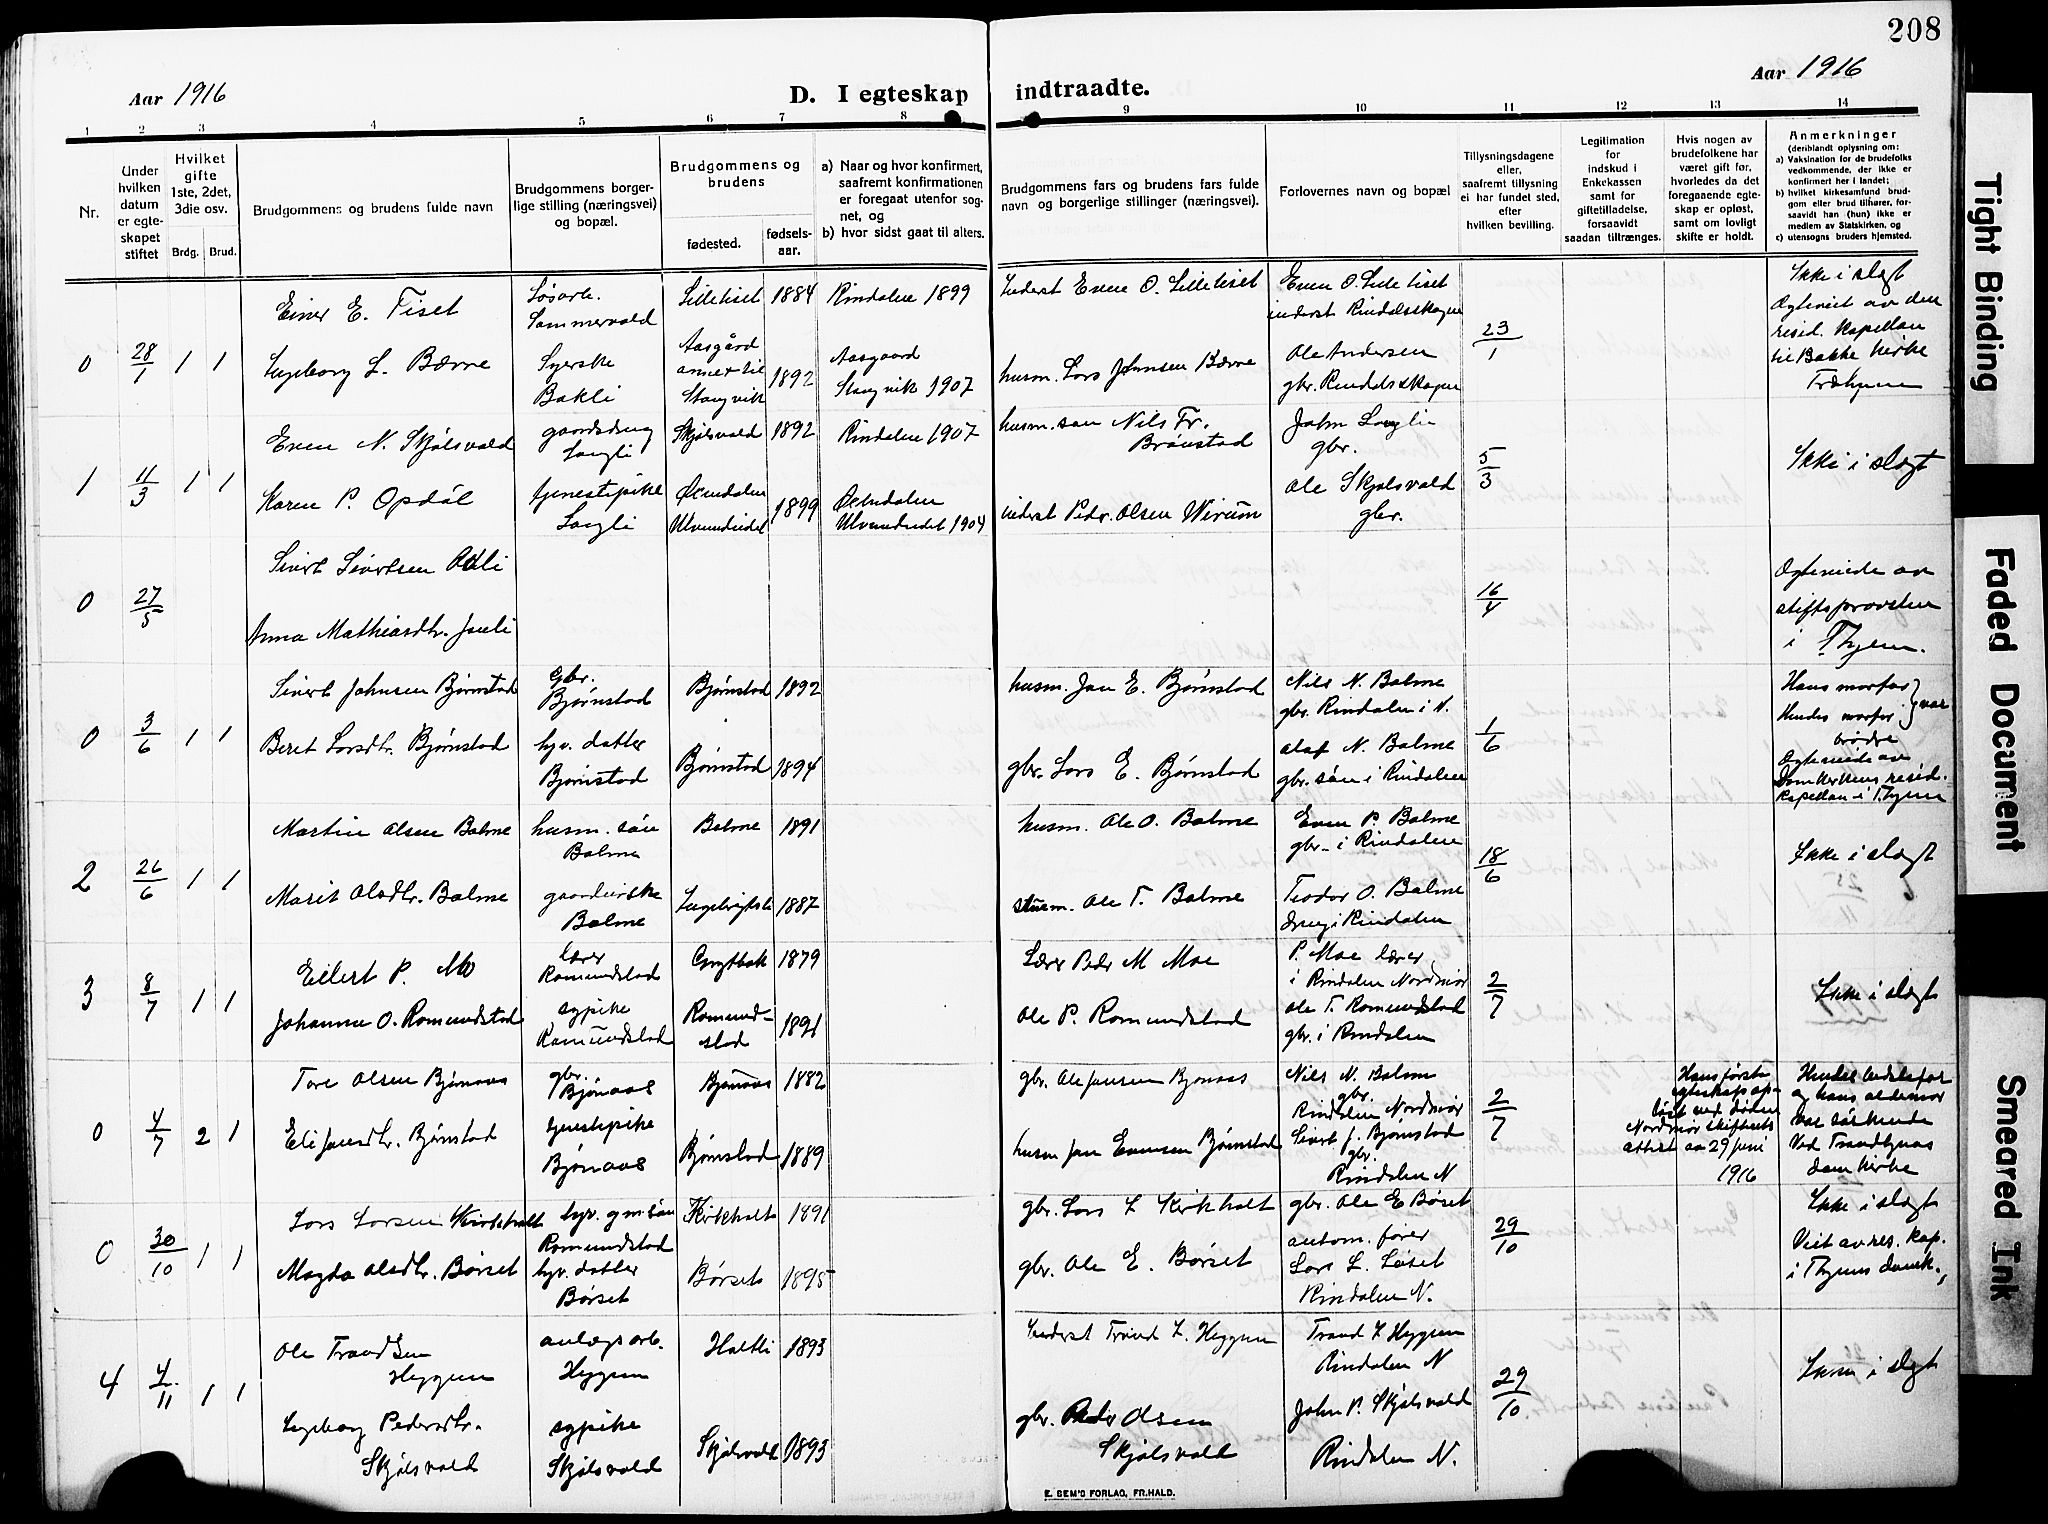 208
Aar 1916
Aar 1916
D. I egteskap indtraadte.
1 2 3 4 5 6 7 8 9 10 11 12 13 14
Nr.
Under hvilken datum er egteskapet stiftet
Hvilket gifte 1ste, 2det, 3die osv.
Brdg. Brud.
Brudgommens og brudens fulde navn
Brudgommens borgerlige stilling (næringsvei) og bopæl.
Brudgommens og brudens
fødested.
fødselsaar.
a) Naar og hvor konfirmert, saafremt konfirmationen er foregaat utenfor sognet, og
b) hvor sidst gaat til alters.
Brudgommens fars og brudens fars fulde navn og borgerlige stillinger (næringsvei).
Forlovernes navn og bopæl
Tillysningsdagene eller, saafremt tillysning ei har fundet sted, efter hvilken bevilling.
Legitimation for indskud i Enkekassen samt for giftetilladelse, forsaavidt saadan tiltrænges.
Hvis nogen av brudefolkene har været gift for, hvorledes da det foregaaende egteskap er opløst, samt om lovligt skifte er holdt.
Anmerkninger
(deriblandt oplysning om:
a) Vaksination for de brudefolks vedkommende, der ikke er konfirmert her i landet;
b) hvilket kirkesamfund brudgom eller brud tilhører, forsaavidt han (hun) ikke er medlem av Statskirken, og
c) utensogns bruders hjemsted.
0 28/1 1 1
Einer E. Tiset
Løsarb.
Sommervold
Lilletiset 1884
Rindalen 1899
Inderst Even O. Lilletiset
Even O. Lilletiset
inderst Rindalsskogen
23/1
Ikke i slegt
Egteviet av den
resid. kapellan
til Bakke kirke
Trhjem
Ingeborg L. Bævre
Syerske
Bakli
Aasgård
annex til
Stangvik 1892
Aasgaard
Stangvik 1907
husm. Lars Johnsen Bævre
Ole Andersen
gbr. Rindalsskogen
1 11/3 1 1
Even N. Skjølsvold
gaardsdreng
Langli
Skjølsvold 1892
Rindalen 1907
husm. søn Nils Fr.
Brønstad
John Langli
gbr.
5/3
Ikke i slegt
Karen P. Opdøl
tjenestepike
Langli
Øxendalen
Ulvundeidet 1899
Øxendalen
Ulvundeidet 1904
inderst Peder Olsen Wirum
Ole Skjølsvold
gbr.
0 27/5
Sivert Sivertsen
Anna Mathiasdtr.
16/4
Egteviede av
stiftsprovsten
i Thjem.
0 3/6 1 1
Sivert Johnsen Bjørnstad
Gbr.
Bjørnstad
Bjørnstad 1892
husm. Jon E. Bjørnstad
Nils N. Bolme
gbr. Rindalen i N.
1/6
Hans morfar
Hendes morfar } var
brødre
Egteviede av
Domkirkens resid.
kapellan i Thjem
Beret Larsdtr. Bjørnstad
hjv. datter
Bjørnstad
Bjørnstad 1894
gbr. Lars E. Bjørnstad
Olaf N. Bolme
gbr. søn i Rindalen
2 26/6 1 1
Martin Olsen Bolme
husm. søn
Bolme
Bolme 1891
husm. Ole O. Bolme
Even P. Bolme
gbr. i Rindalen
18/6
Ikke i slegt
Marit Olsdtr. Bolme
Bolme
1887
Ole T. Bolme
Teodor O. Bolme
dreng i Rindalen
3 8/7 1 1
Eilert P. Mo
lærer
Romundstad
1879
Lærer Peder M Moe
P. Moe lærer
i Rindalen Nordmør
2/7
Ikke i slegt
Johanna O. Romundstad
sypike
Romundstad
Romundstad 1891
Ole P. Romundstad
Ole T. Romundstad
gbr. i Rindalen
0 4/7 2 1
Tore Olsen Bjørnaas
gbr.
Bjønaas
Bjønaas 1882
gbr. Ole Jonsen Bjønaas
Nils N. Bolme
gbr.
Rindalen Nordmør
2/7
Hans første
egteskap opløst
ved døden
Nordmør skifterets
attest av 29 juni
1916
Hendes bedstefar
og hans oldemor
var søskende
Ved Trondhjems
domkirke
Eli Jonsdtr. Bjørnstad
tjenestepike
Bjønaas
Bjørnstad 1889
husm Jon Evensen Bjørnstad
Sivert J. Bjørnstad
gbr.
Rindalen N
0 30/10 1 1
Lars Larsen Kirkholt
hjv. gm. søn
Romundstad
Kirkholt 1891
gbr. Lars L Kirkholt
gbr. Ole E Børset
autom. fører
29/10
Ikke i slegt
Viet av res. kap.
i Thjems domk.,
Magda Olsdtr. Børset
hjv. datter
Børset
Børset 1895
gbr. Ole E. Børset
Lars L. Løset
Rindalen N.
4 4/11 1 1
Ole Trondsen
Heggem
anlegsarb.
Heggem
Holtli 1893
Inderst Trond L. Heggem
Trond L Heggem
Rindalen N
29/10
Ikke i slegt
Ingeborg Pedersdtr.
Skjølsvold
sypike
Skjølsvold
Skjølsvold 1893
gbr. Peder Olsen
Skjølsvold
John P. Skjølsvold
Rindalen N.
E. SEM'S FORLAG, FR.HALD.
Tight Binding
Faded Document
Smeared Ink